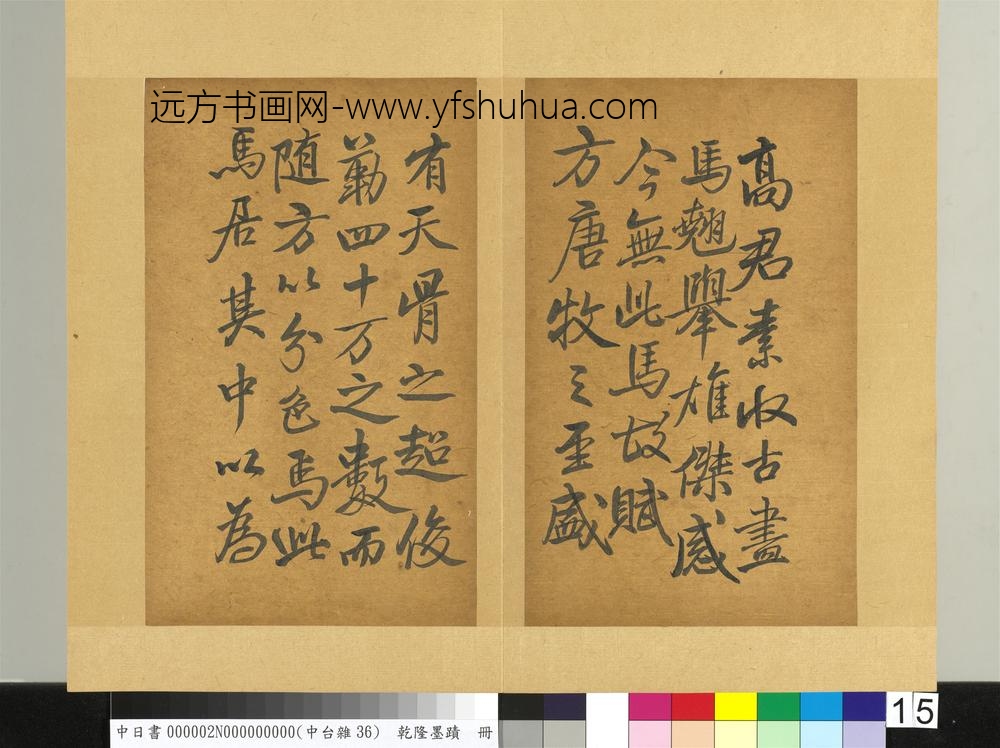 远方书画网-www.yfshuhua.com
高君素收古畫
馬翹舉雄傑感
今無此馬故賦
方唐牧之至盛
有天骨之超俊
勒四十万之數而
随方以分色焉此
馬居其中以為
中日書000002N000000000(中台雜36) 乾隆墨蹟 冊
15